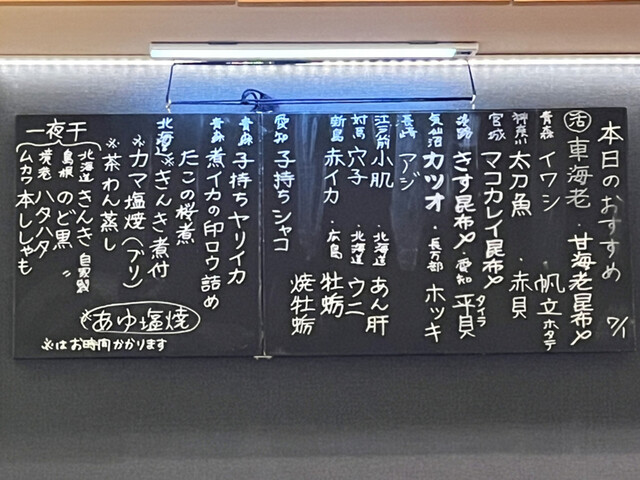 本日のおすすめ 7/1
㊋車海老・甘海老昆布〆
青森 イワシ ・帆立ホタテ
神奈川 太刀魚 ・赤貝
宮城 マコカレイ昆布〆
淡路 さす昆布〆・愛知 平貝タイラ
気仙沼 カツオ ・長万部 ホッキ
長崎 アジ
江戸前 小肌 北海道 あん肝
対馬 穴子 ・北海道 ウニ
新島 赤イカ ・広島 牡蛎
焼牡蛎
愛知 子持ちシャコ
青森 子持ちヤリイカ
青森 煮イカの印ロウ詰め
たこの桜煮
北海道※きんき煮付
※カマ塩焼(ブリ)
※茶わん蒸し
※あゆ塩焼
一夜干
北海道 きんき自家製
島根 のど黒〃
養老 ハタハタ
ムカワ 本ししゃも
※はお時間かかります